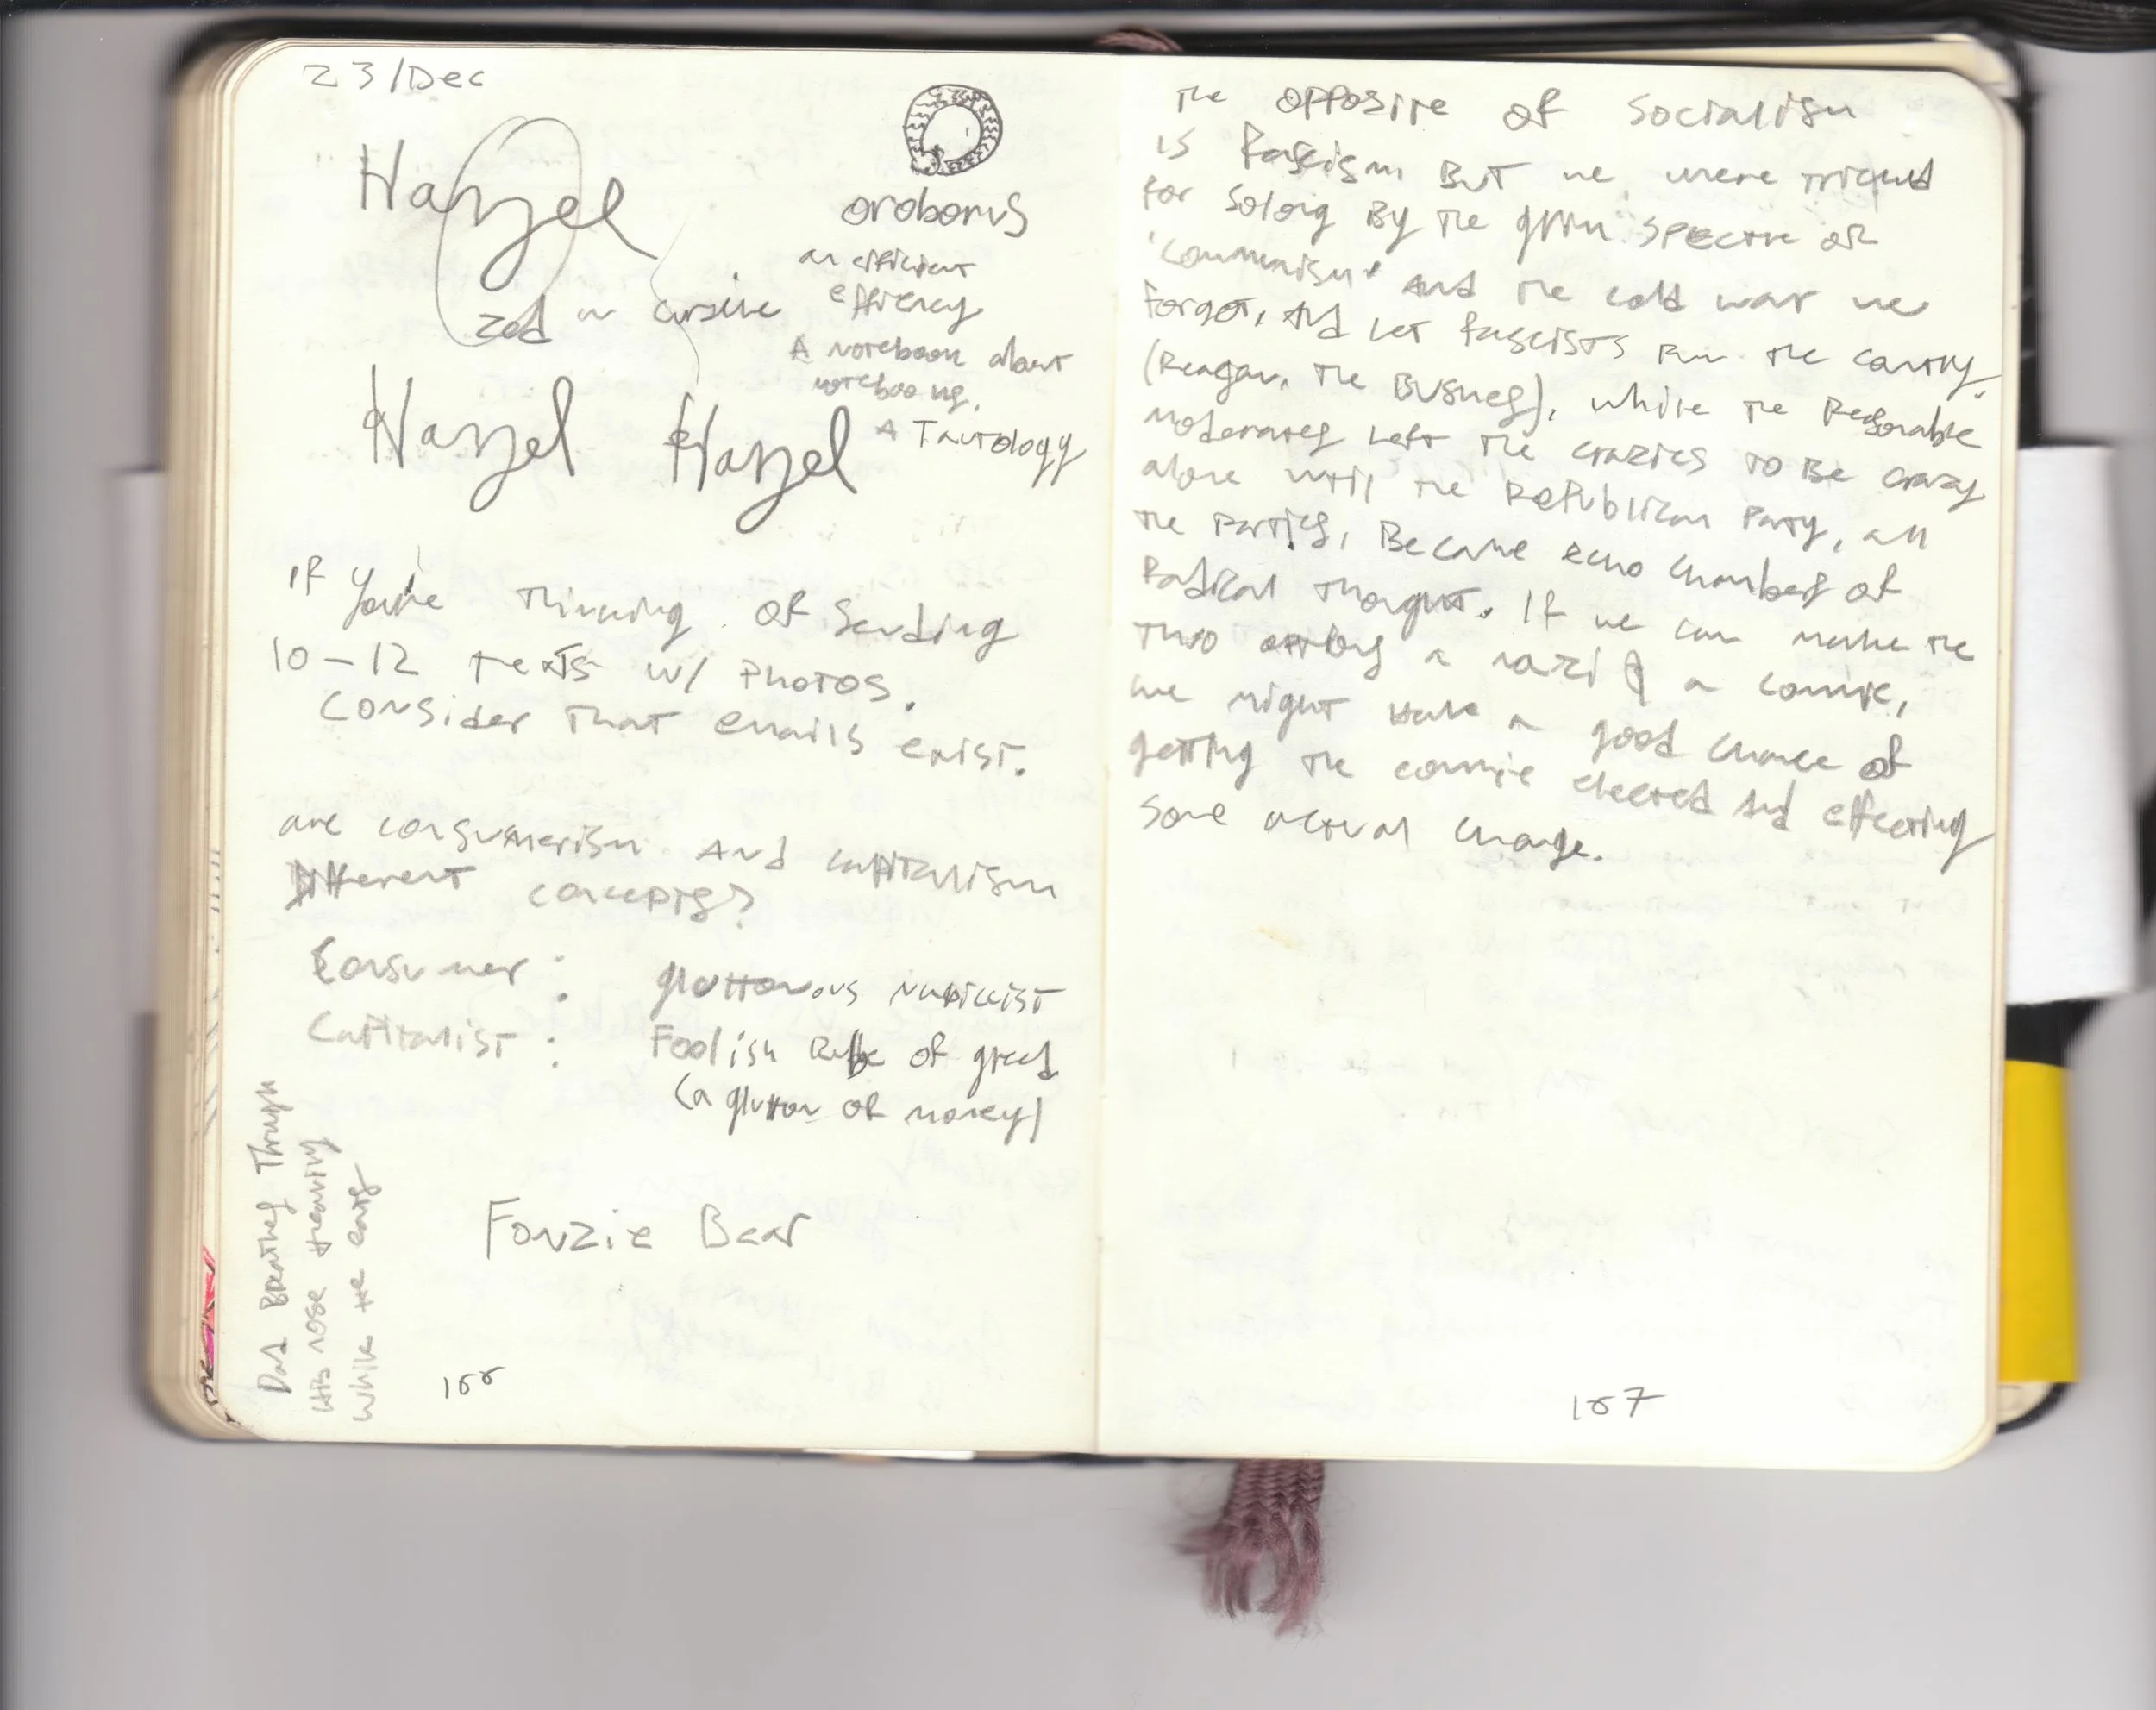 23/Dec
Hazel
zed in cursive
Hazel Hazel
oroborus
an efficient
effiency
A notebook about
notebooing.
A Tautology
If you're thinking of sending
10-12 texts w/ Photos.
Consider that emails exist.
are consumerism and capitalism
Different concepts?
Consumer: gluttonous
Capitalist: Foolish of greed
(a glutton of money)
Fonzie Bear
Dad Breathes Through
His nose heaviny
while he eats
166
The opposite of Socialism
is fascism But we were tricked
for solong By the grim spectre of
'communism' And the cold war we
forgot, And let fascists run the contry.
(Reagan, the Bushes), while the Reasonable
moderates left the crazies to Be crazy
alone until the Republican Party, all
the parties, Became echo chambers of
Radical thought. If we can make the
two a nazi & a commie,
we might have a good chance of
getting the commie elected And effecting
some actual change.
167